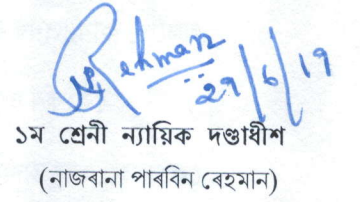 Rehman
29/6/19
১ম শ্ৰেনী ন্যায়িক দণ্ডাধীশ
(নাজৰানা পাৰবিন ৰেহমান)